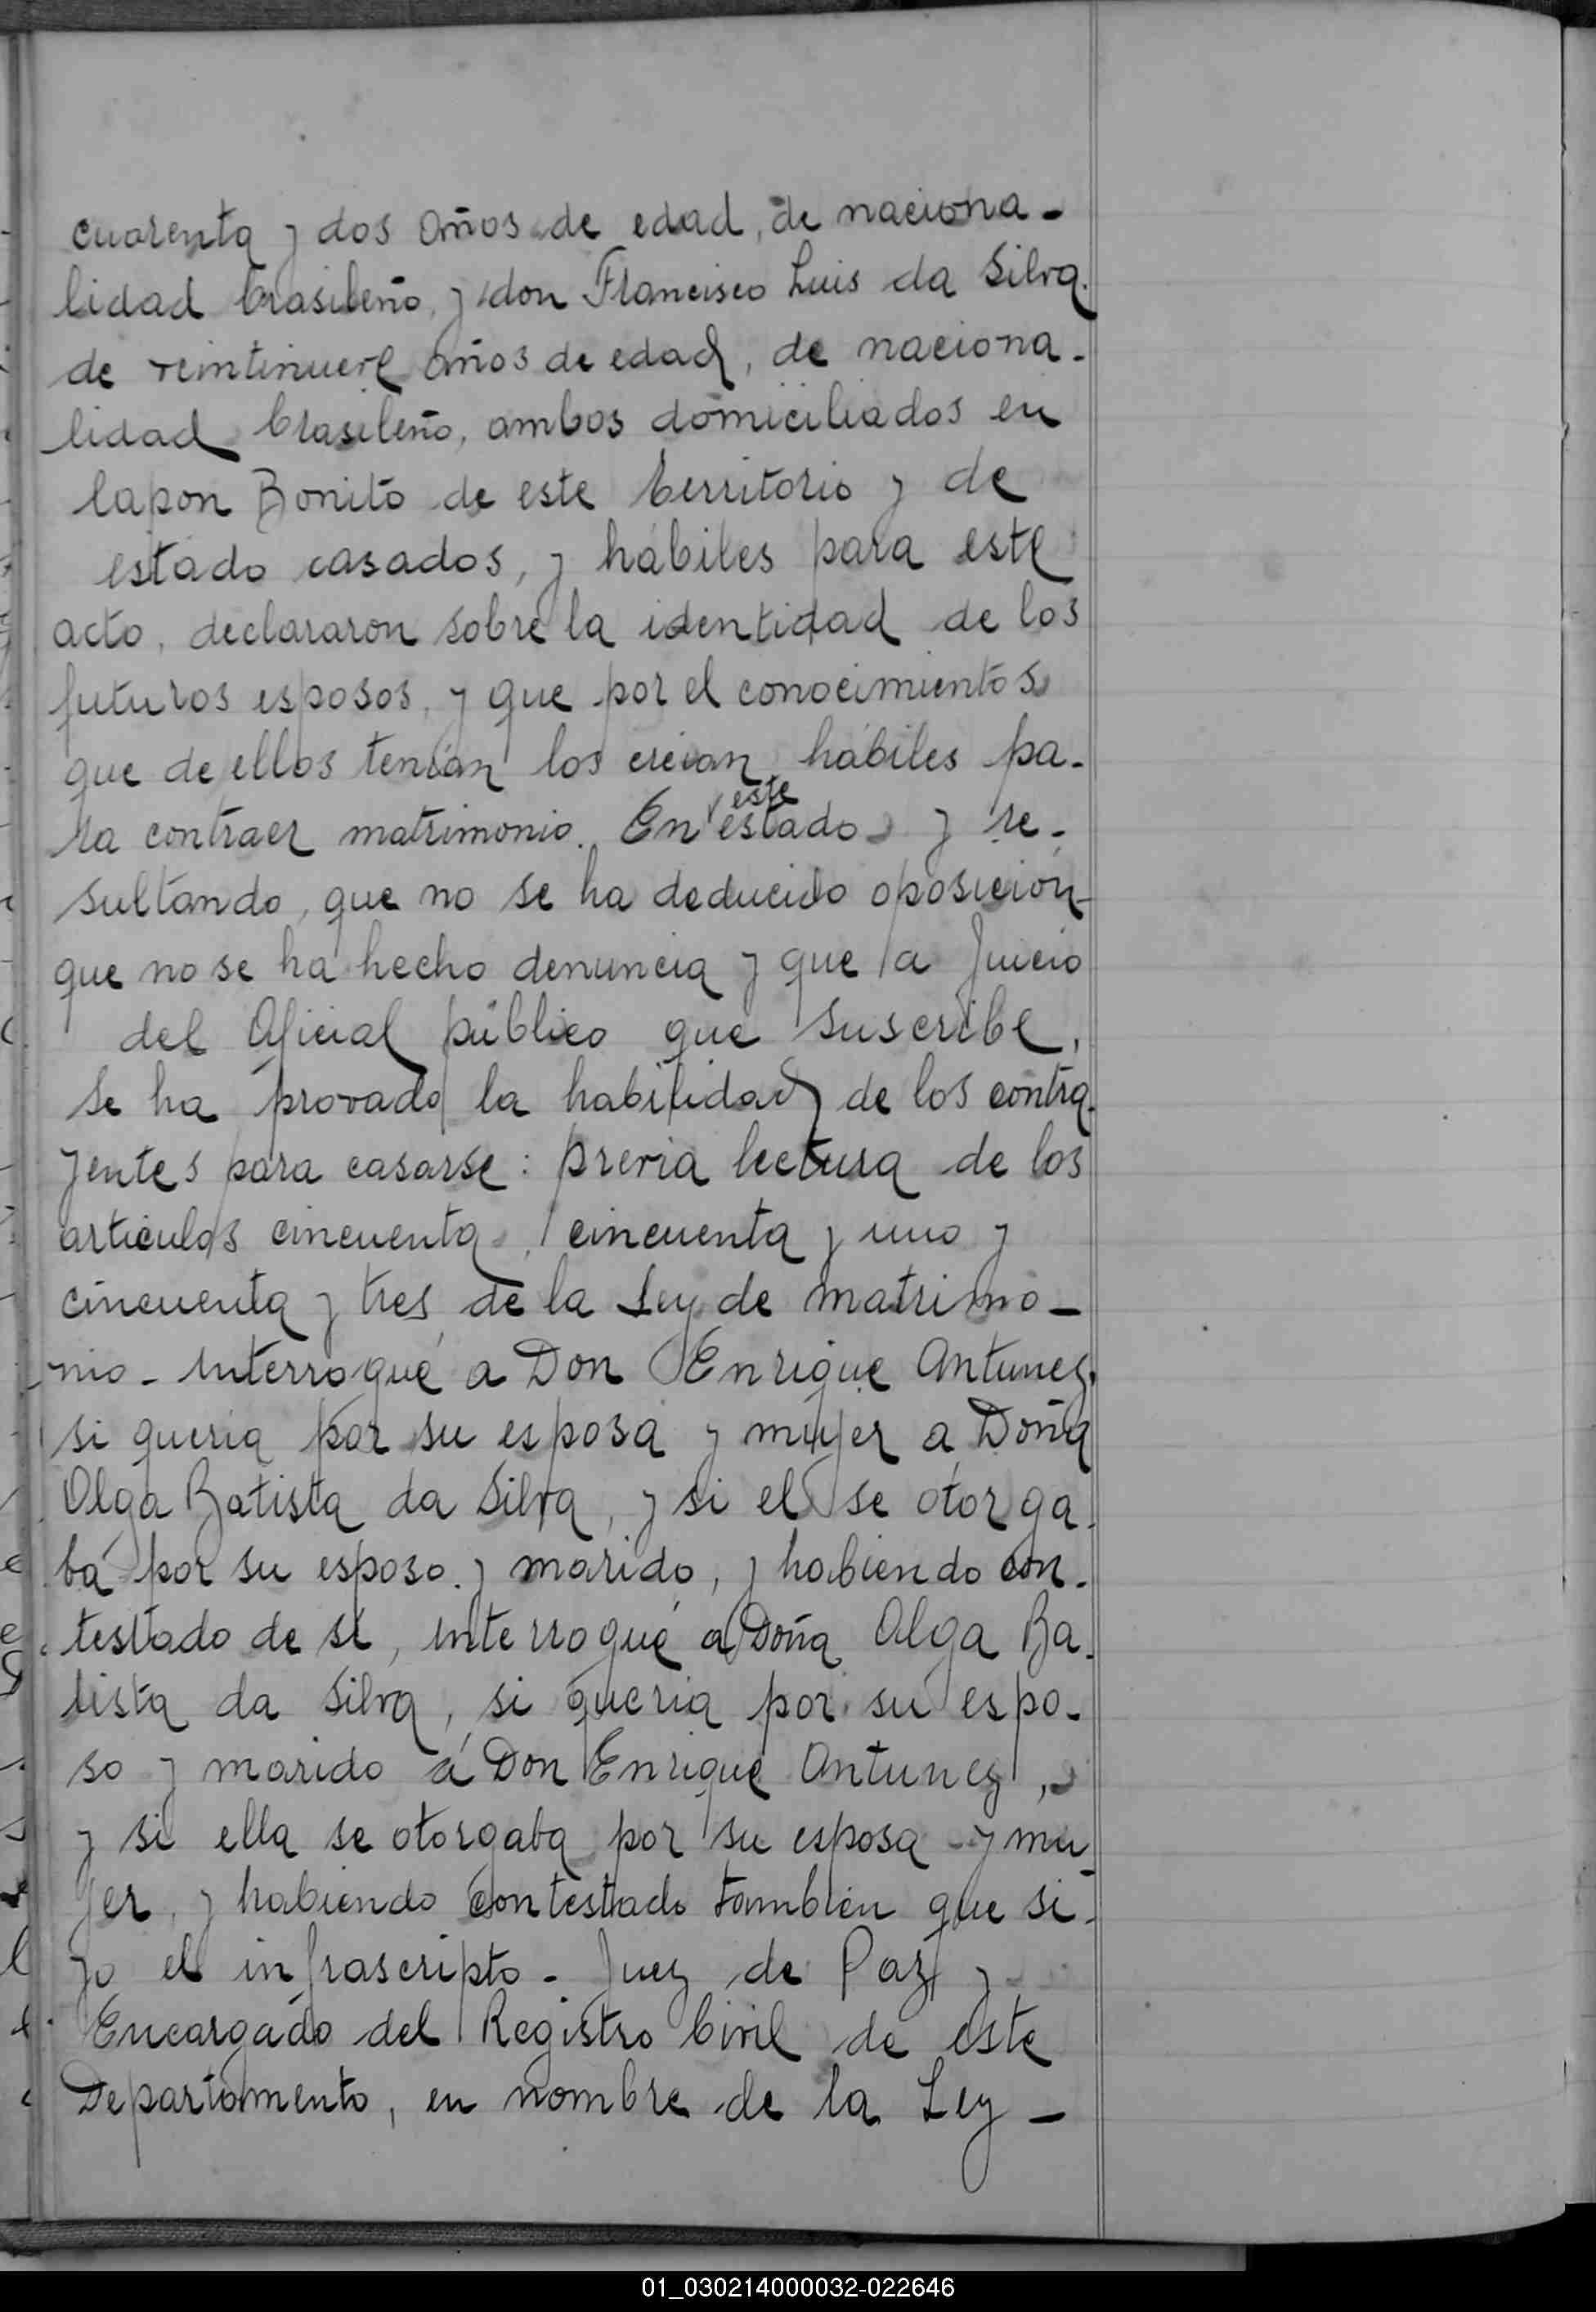 cuarenta y dos años de edad, de naciona-
lidad brasileño, y don Francisco Luis da Silva.
de veintinueve años de edad, de naciona-
lidad brasileño, ambos domiciliados en
Capon Bonito de este Territorio y de
estado casados, y hábiles para este
acto, declararon sobre la identidad de los
futuros esposos, y que por el conocimientos
que de ellos tenían los creian hábiles pa-
este
ra contraer matrimonio. En estado y re-
sultando, que no se ha deducido oposición-
que no se ha hecho denuncia y que a Juicio
del Oficial público que suscribe,
se ha provado la habilidad de los contra-
yentes para casarse: previa lectura de los
articulos cincuenta, cincuenta y uno y
cincuenta y tres de la Ley de matrimo-
nio - interrogué a Don Enrique Antunez,
si queria por su esposa y mujer a Doña
Olga Batista da Silva, y si el se otorga-
ba por su esposo y marido, y habiendo con-
testado de sí, interrogué a Doña Olga Ba-
tista da Silva, si queria por su espo-
so y marido á Don Enrique Antunez,
y si ella se otorgaba por su esposa y mu-
jer, y habiendo contestado también que si-
yo el infrascripto - Juez de Paz y
Encargado del Registro Civil de este
Departamento, en nombre de la Ley -
01_030214000032-022646